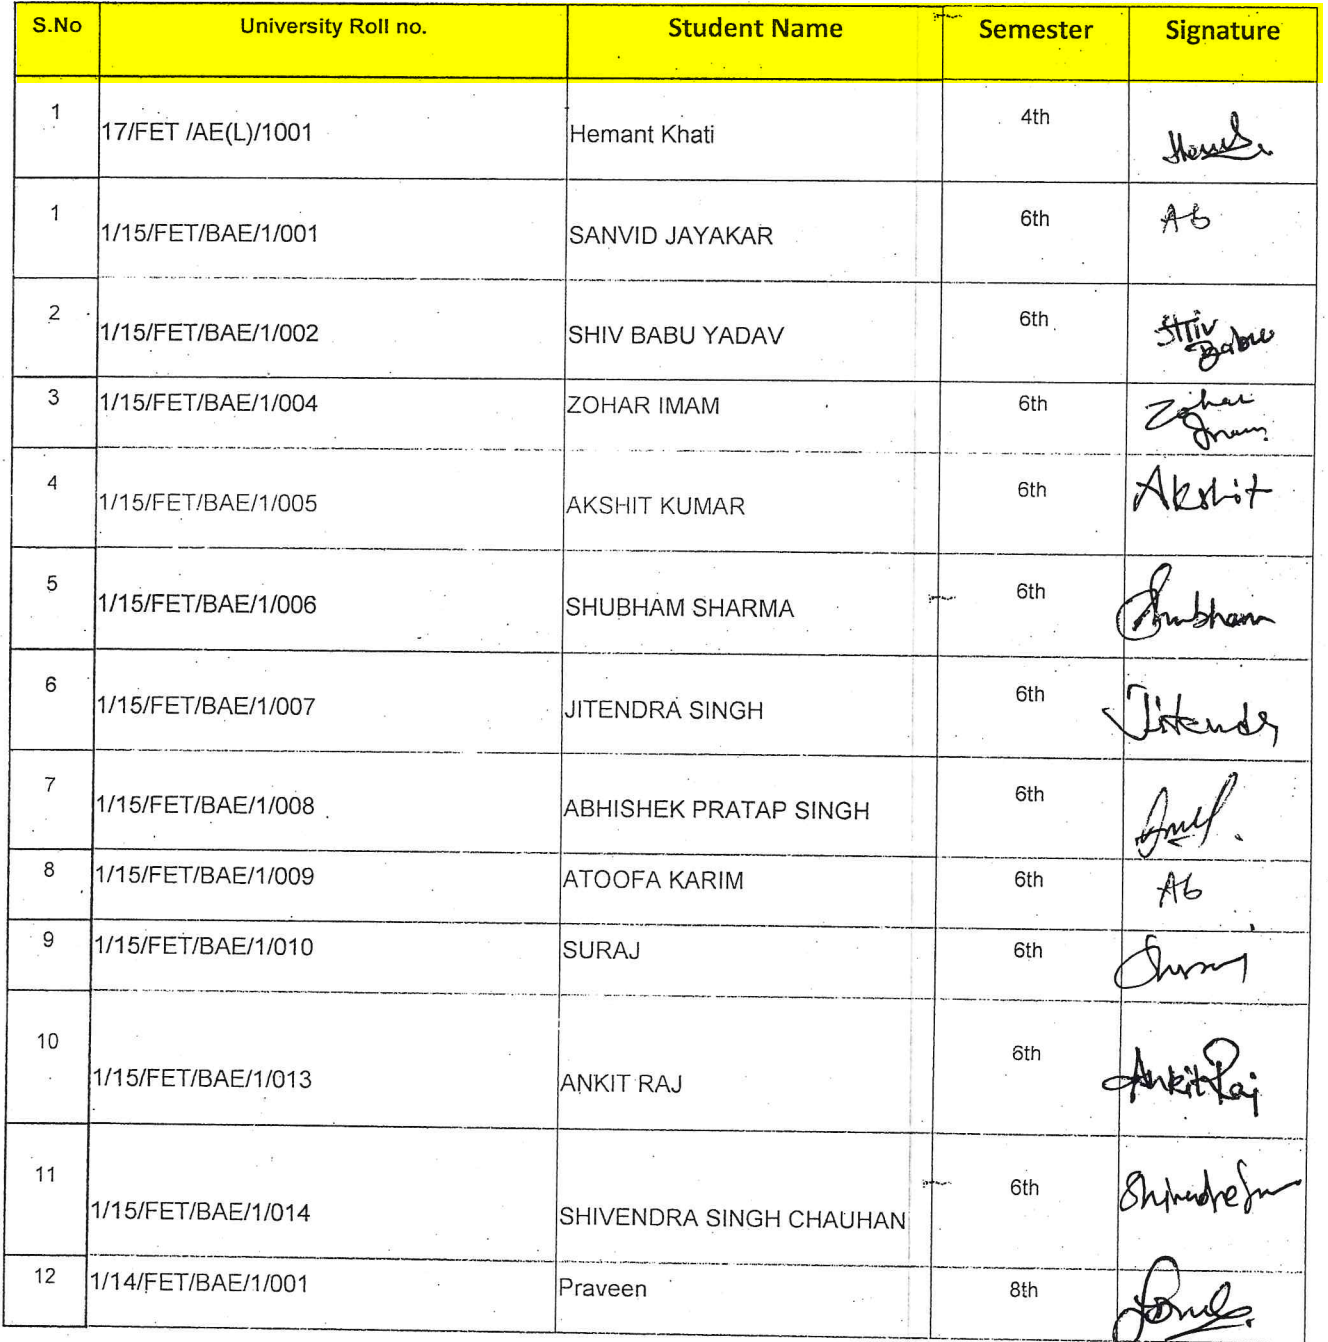 S.No University Roll no. Student Name Semester Signature
1 17/FET /AE(L)/1001 Hemant Khati 4th
1 1/15/FET/BAE/1/001 SANVID JAYAKAR 6th Ab
2 1/15/FET/BAE/1/002 SHIV BABU YADAV 6th Shiv
Babu
3 1/15/FET/BAE/1/004 ZOHAR IMAM 6th Zohar
Imam
4 1/15/FET/BAE/1/005 AKSHIT KUMAR 6th Akshit
5 1/15/FET/BAE/1/006 SHUBHAM SHARMA 6th Shubham
6 1/15/FET/BAE/1/007 JITENDRA SINGH 6th Jitendra
7 1/15/FET/BAE/1/008 ABHISHEK PRATAP SINGH 6th
8 1/15/FET/BAE/1/009 ATOOFA KARIM 6th Ab
9 1/15/FET/BAE/1/010 SURAJ 6th Suraj
10 1/15/FET/BAE/1/013 ANKIT RAJ 6th Ankit Raj
11 1/15/FET/BAE/1/014 SHIVENDRA SINGH CHAUHAN 6th
12 1/14/FET/BAE/1/001 Praveen 8th